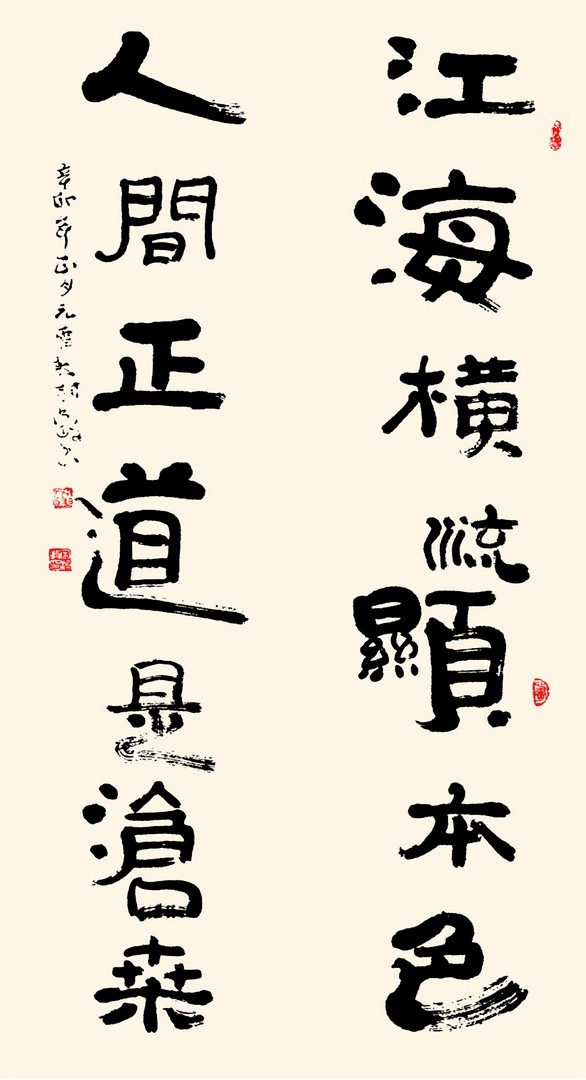 江海橫流顯本色
人間正道是滄桑
辛卯年正月元霄